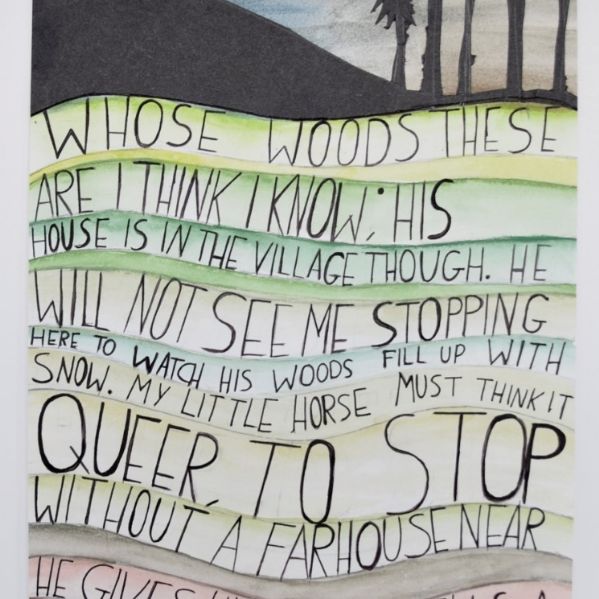 WHOSE WOODS THESE
ARE I THINK I KNOW; HIS
HOUSE IS IN THE VILLAGE THOUGH. HE
WILL NOT SEE ME STOPPING
HERE TO WATCH HIS WOODS FILL UP WITH
SNOW. MY LITTLE HORSE MUST THINK IT
QUEER TO STOP
WITHOUT A FARHOUSE NEAR
HE GIVES